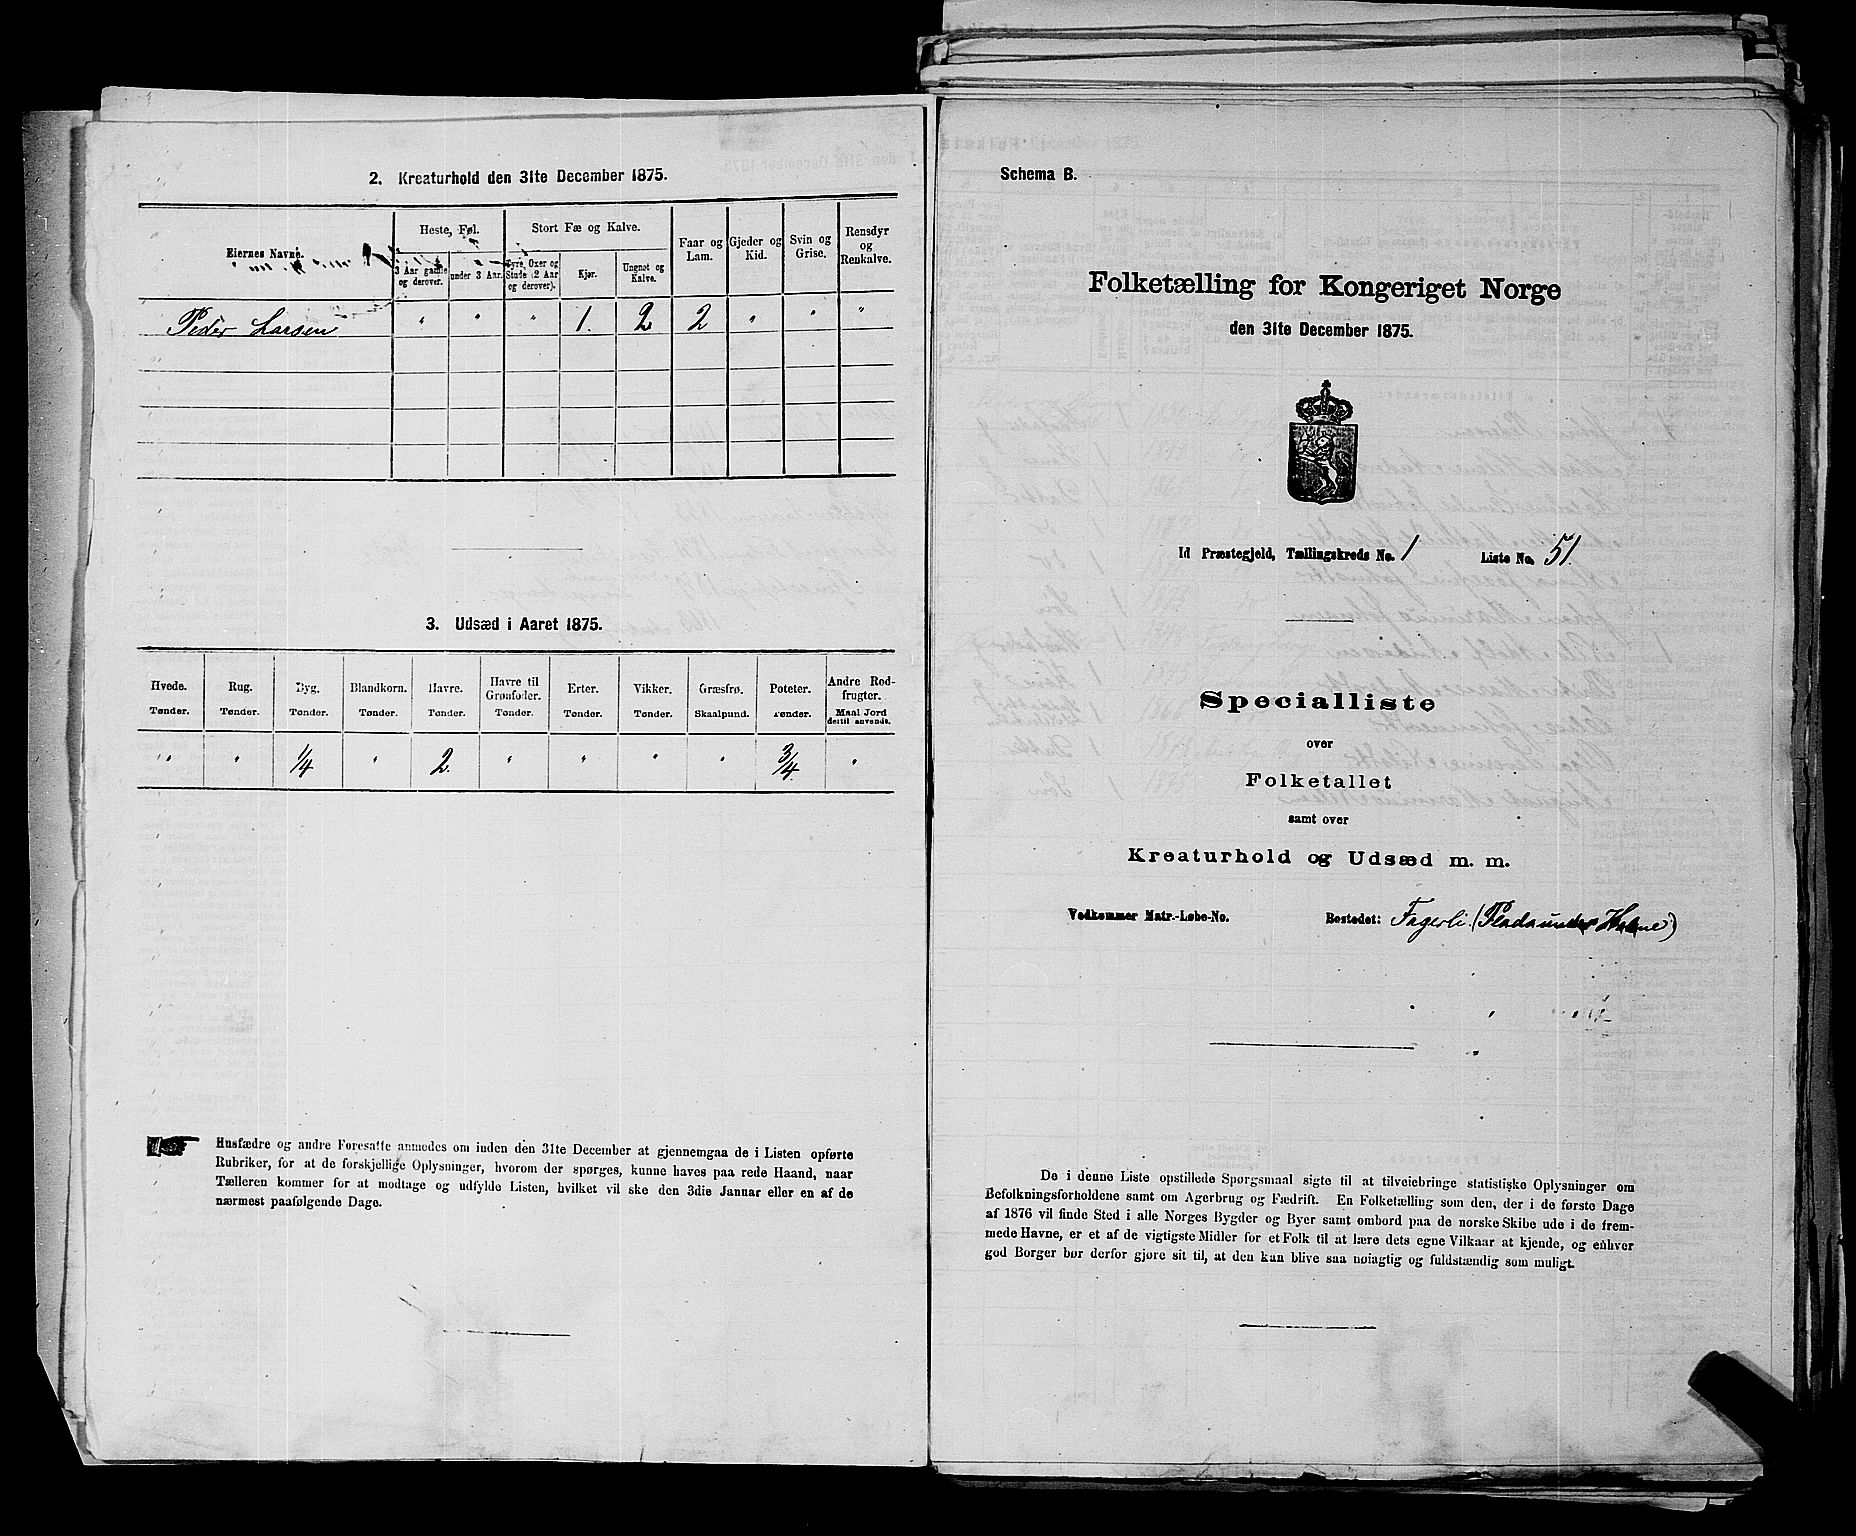 2. Kreaturhold den 31te December 1875.
Eiernes Navne.
Heste, Føl.
Stort Fæ og Kalve.
Faar og Lam.
Gjeder og Kid.
Svin og Grise.
Rensdyr og Renkalve.
3 Aar gamle og derover.
under 3 Aar.
Tyre, Oxer og Stude (2 Aar og derover).
Kjør.
Ungnøt og Kalve.
Peder Larsen " " " 1. 2 2 " " "
3. Udsæd i Aaret 1875.
Hvede. Rug. Byg. Blandkorn. Havre. Havre til Grønfoder. Erter. Vikker. Græsfrø. Poteter. Andre Rodfrugter.
Tønder. Tønder. Tønder. Tønder. Tønder. Tønder. Tønder. Tønder. Skaalpund. Tønder. Maal Jord dertil anvendt.
" " 1/4 " 2. " " " " 3/4. "
Husfædre og andre Foresatte anmodes om inden den 31te December at gjennemgaa de i Listen opførte
Rubriker, for at de forskjellige Oplysninger, hvorom der spørges, kunne haves paa rede Haand, naar
Tælleren kommer for at modtage og udfylde Listen, hvilket vil ske den 3die Januar eller en af de
nærmest paafølgende Dage.
Schema B.
Folketælling for Kongeriget Norge
den 31te December 1875.
Id Præstegjeld, Tællingskreds No. 1 Liste No. 51.
Specialliste
over
Folketallet
samt over
Kreaturhold og Udsæd m. m.
Vedkommer Matr.-Løbe-No. Bostedet: Fagerli. (Plads under )
De i denne Liste opstillede Spørgsmaal sigte til at tilveiebringe statistiske Oplysninger om
Befolkningsforholdene samt om Agerbrug og Fædrift. En Folketælling som den, der i de første Dage
af 1876 vil finde Sted i alle Norges Bygder og Byer samt ombord paa de norske Skibe ude i de frem-
mede Havne, er et af de vigtigste Midler for et Folk til at lære dets egne Vilkaar at kjende, og enhver
god Borger bør derfor gjøre sit til, at den kan blive saa nøiagtig og fuldstændig som muligt.